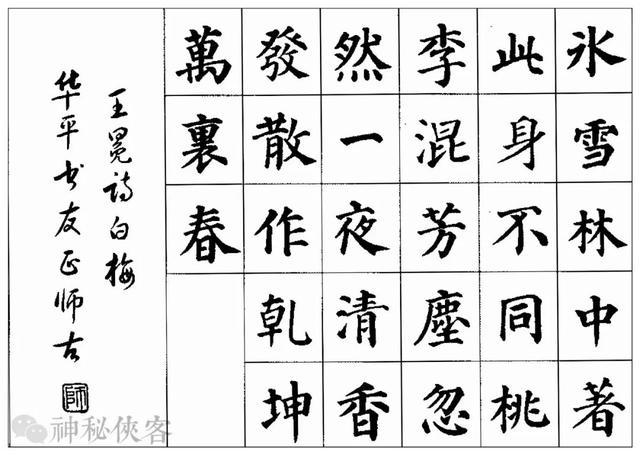 氷雪林中著
此身不同桃
李混芳塵忽
然一夜清香
發散作乾坤
萬裏春
王冕诗白梅
华平书友正师古
師
神秘俠客